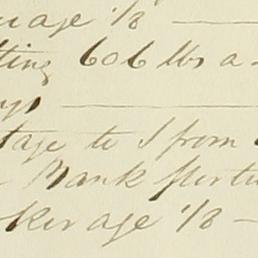 age 1/8 —
tting 606 lbs a
ys —
tage to S from
Bank
ker age 1/8 —